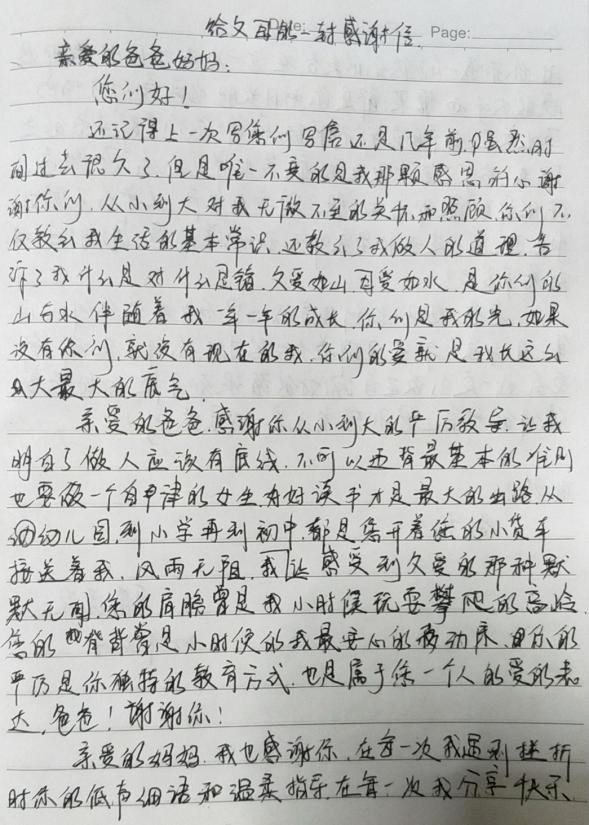 给父母的一封感谢信
Page:
亲爱的爸爸妈妈:
您们好!
还记得上一次写您们写信还是几年前,虽然时
间过去很久了,但是唯一不变的是我那颗感恩的心谢
谢你们,从小到大对我无微不至的关怀和照顾,你们不
仅教会我生活的基本常识,还教会了我做人的道理,告
诉了我什么是对什么是错,父爱如山,母爱如水,是你们的
山与水伴随着我一年一年的成长,你们是我的光,如果
没有你们,就没有现在的我,你们的爱就是我长这么
大最大的底气.
亲爱的爸爸,感谢你从小到大的严厉教导,让我
明白了做人应该有底线,不可以违背最基本的准则
也要做一个自律的女生,好好读书才是最大的出路,从
幼儿园,到小学再到初中,都是您开着您的小货车
接送着我,风雨无阻,让我感受到父爱的那种默
默无闻,您的肩膀曾是我小时候玩耍攀爬的高峰
您的背曾是小时候的我最安心的移动床,你的
严厉是你独特的教育方式,也是属于你一个人的爱的表
达,爸爸!谢谢你!
亲爱的妈妈,我也感谢你,在每一次我遇到挫折
时你的低声细语和温柔指导,在每一次我分享快乐